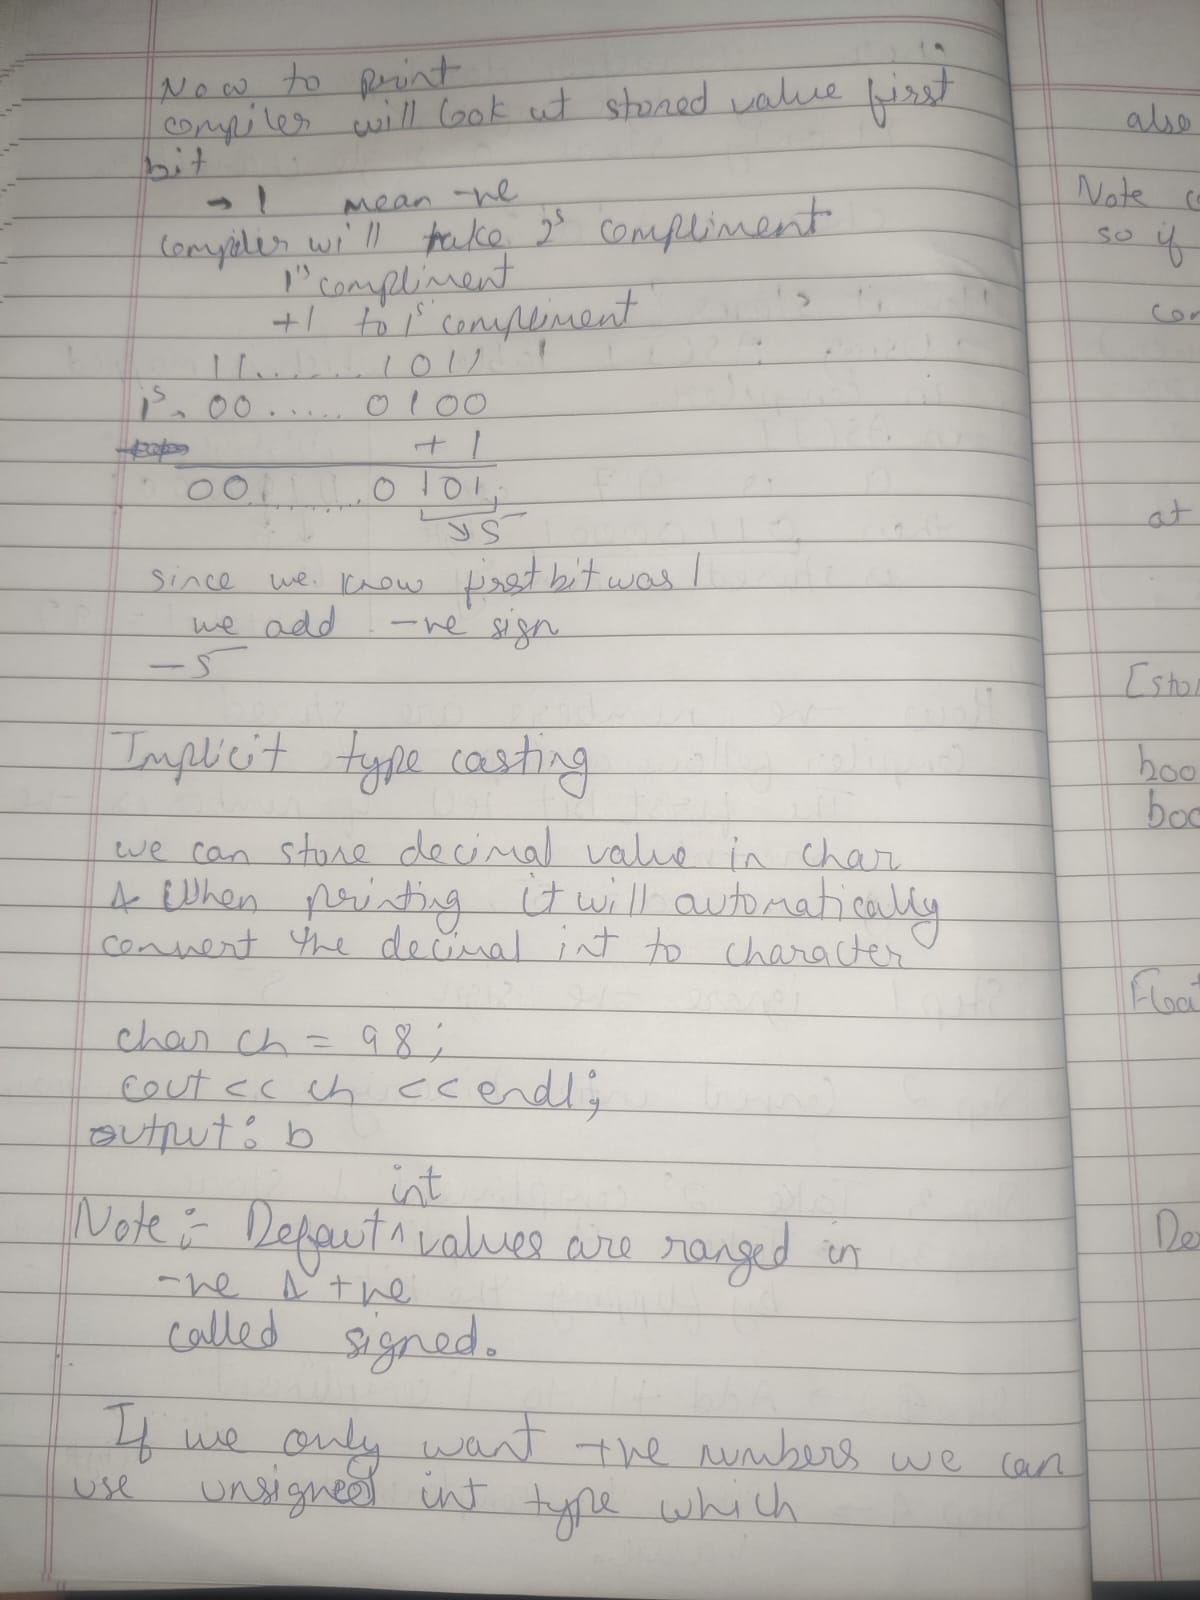 Now to print
compiler will look at stored value first
bit
→ 1 mean -ve
compiler will take 2s compliment
1's compliment
+1 to 1s compliment
11.......1011
1s → 00......0100
+ 1
00........0101
↘5
since we know first bit was 1
we add -ve sign
-5
Implicit type casting
we can store decimal value in char
& When printing it will automatically
convert the decimal int to character
char ch = 98;
cout << ch << endl;
output: b
int
Note :- Default ^ values are ranged in
-ve & +ve
called signed.
If we only want +ve numbers we can
use unsigned int type which
also
Note
so if
at